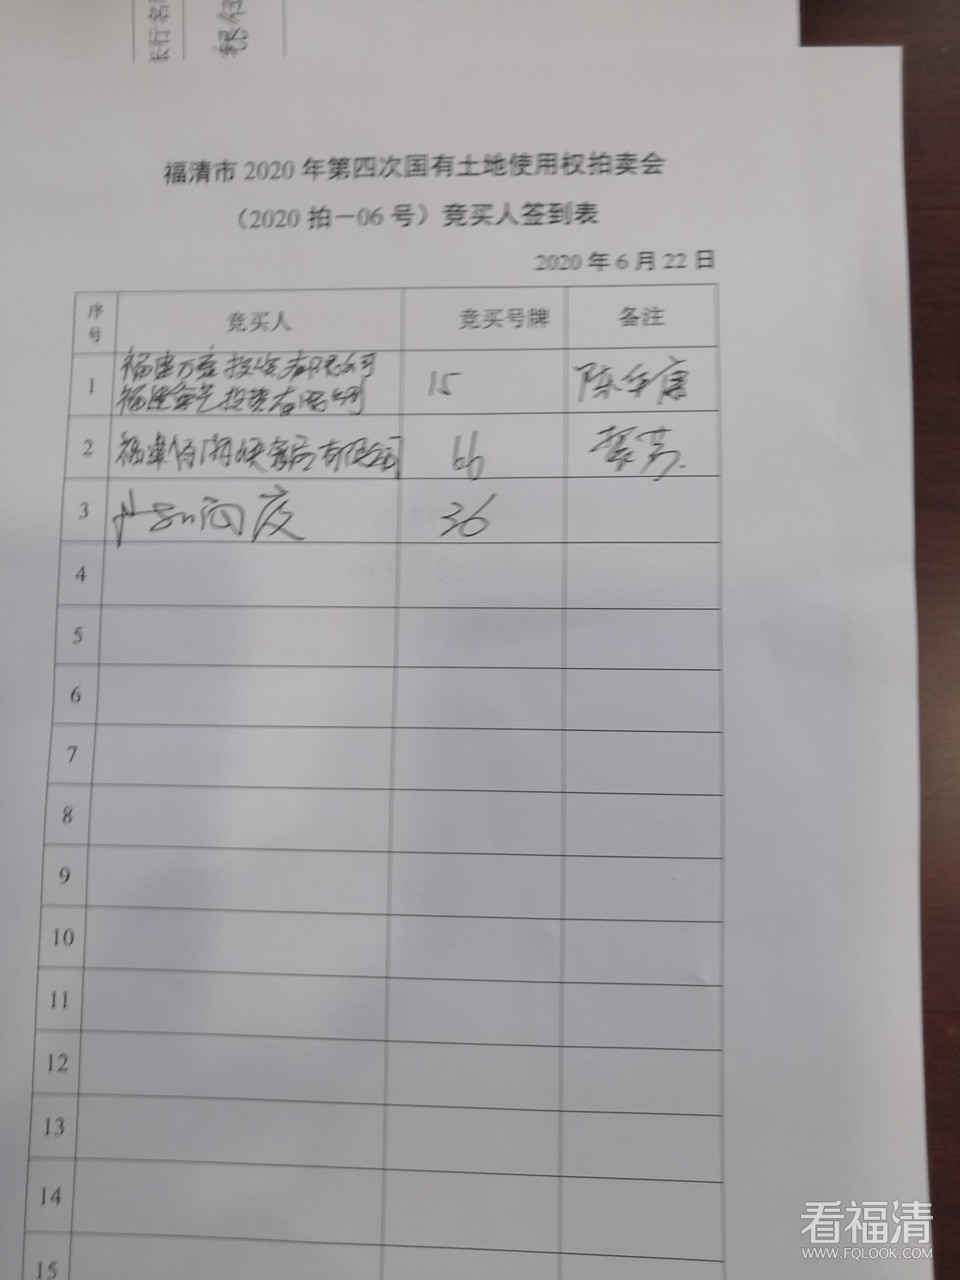 福清市 2020 年第四次国有土地使用权拍卖会
（2020 拍－06 号）竞买人签到表
2020 年 6 月 22 日
序号 竞买人 竞买号牌 备注
1 福建万 投资有限公司 15 陈华
福建 投资有限公司
2 福建 有限公司 66
3 36
4
5
6
7
8
9
10
11
12
13
14
15
看福清
WWW.FQLOOK.COM